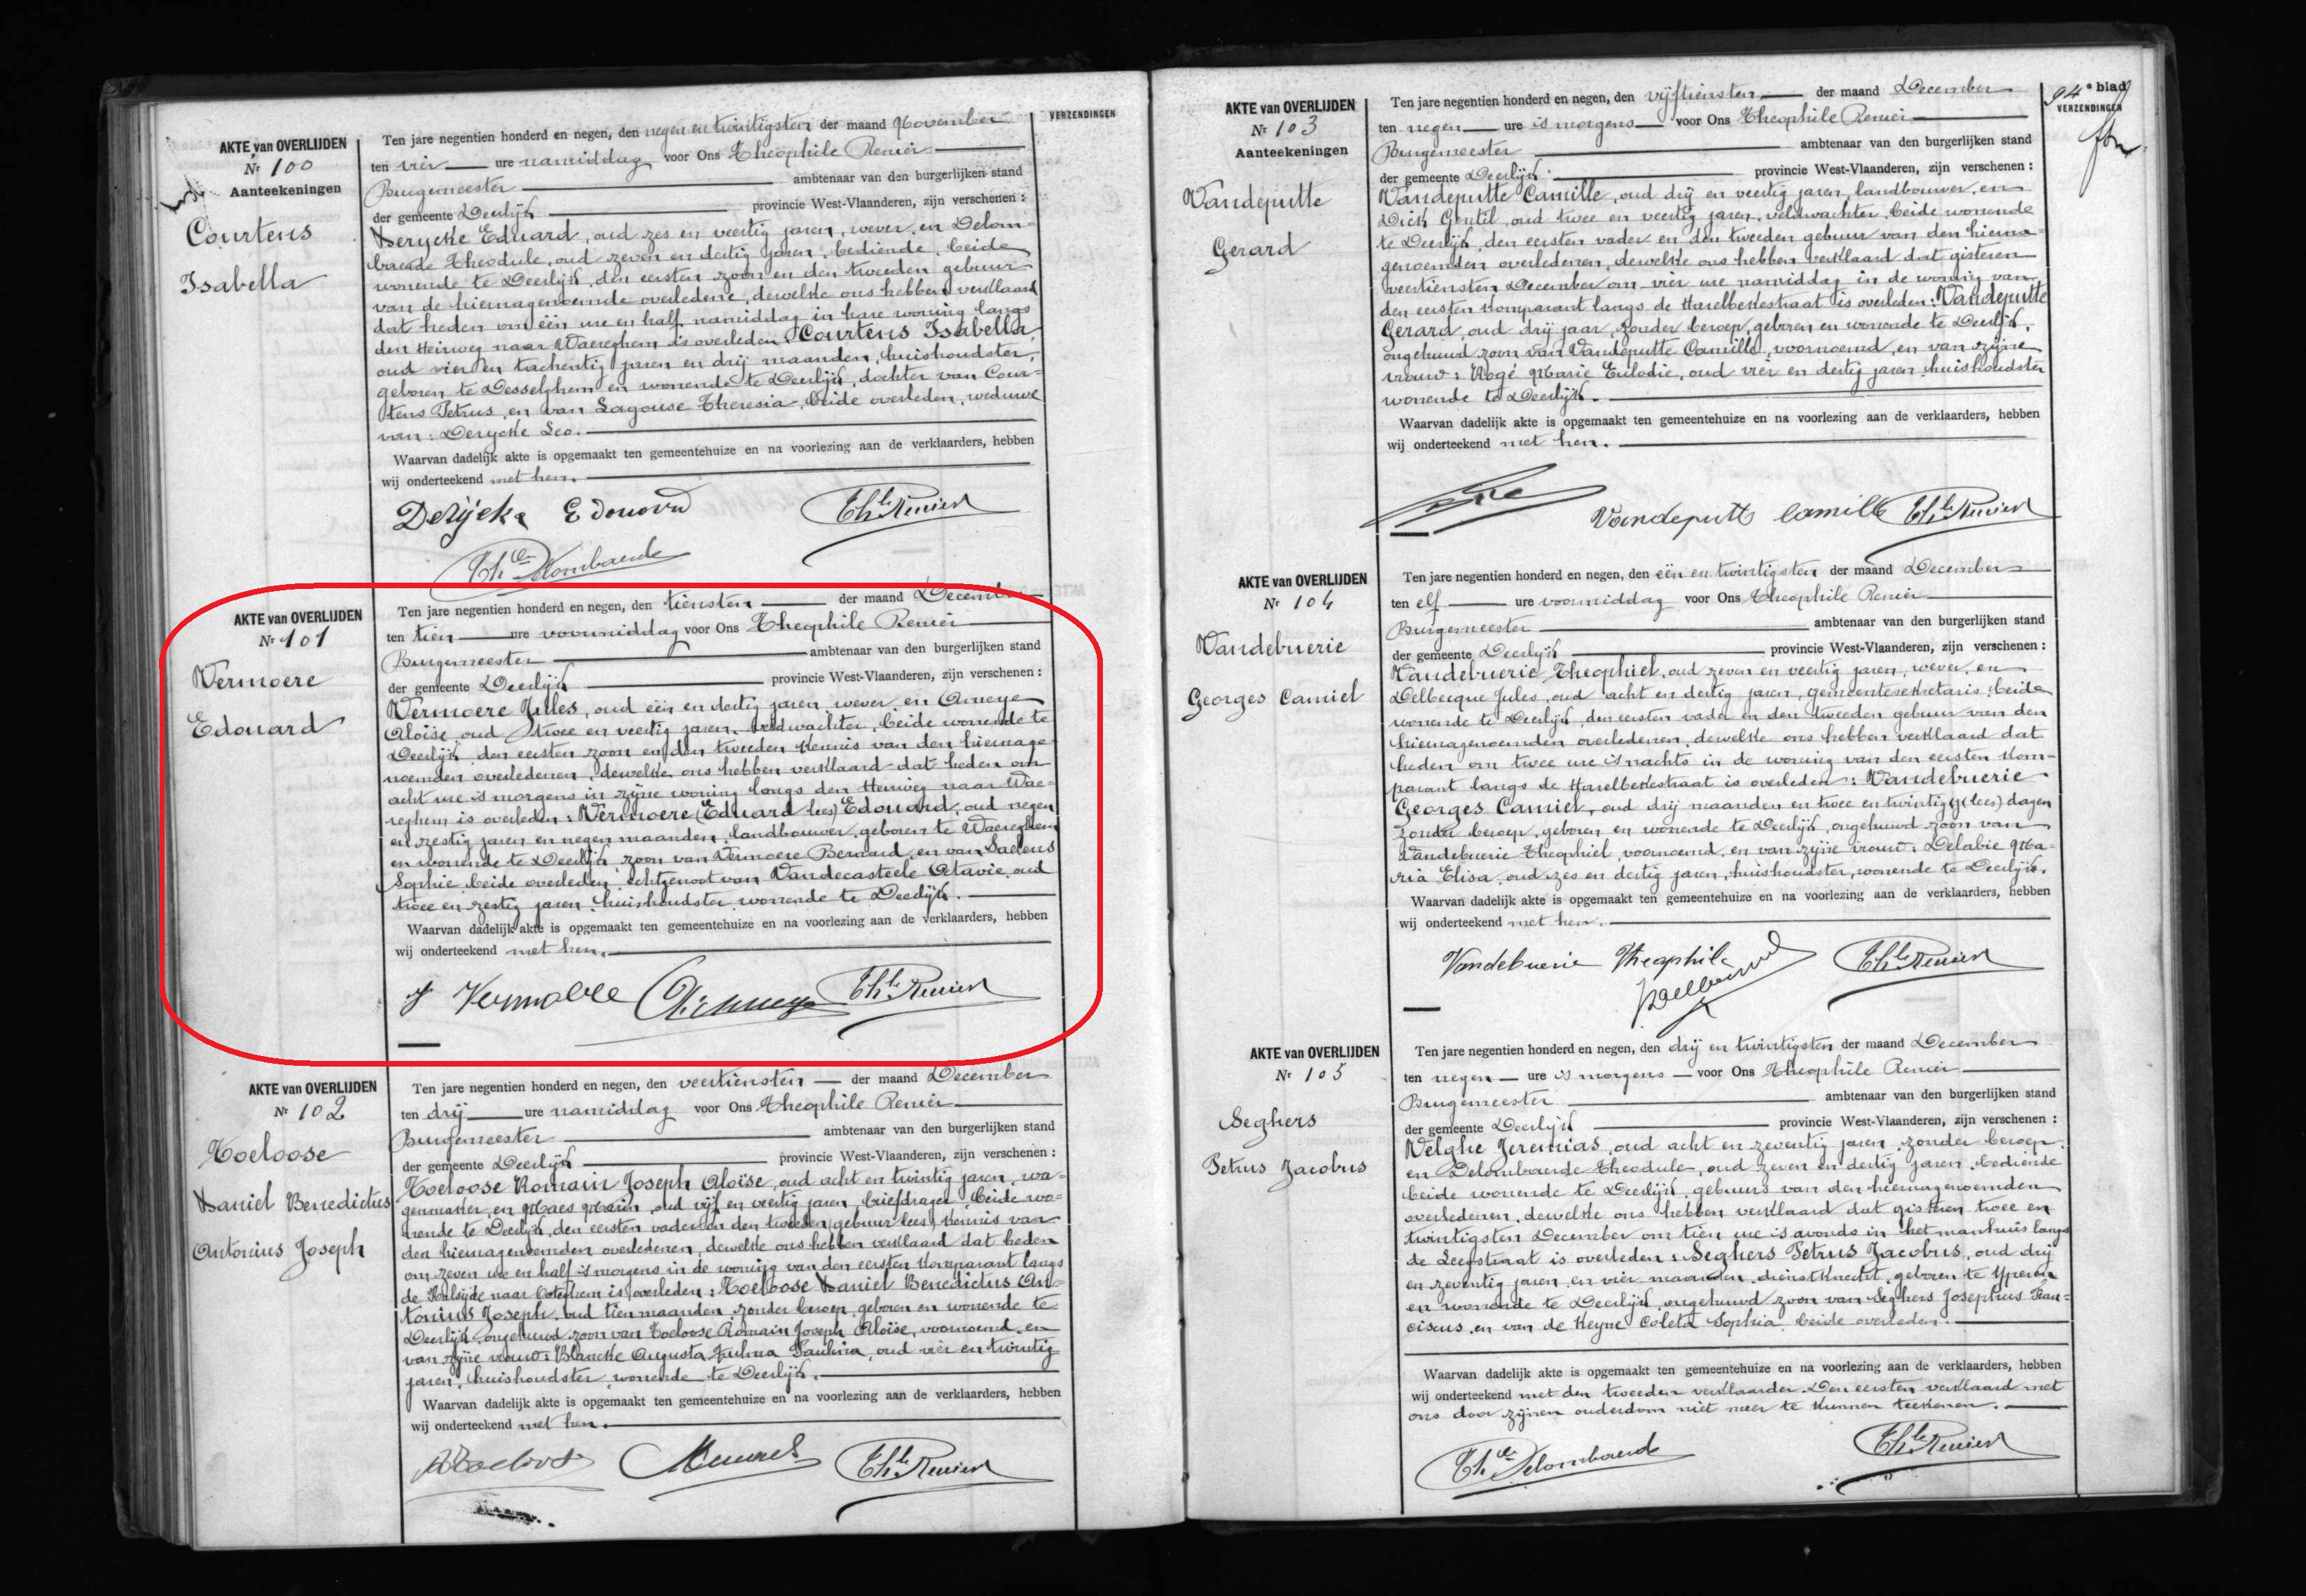 AKTE van OVERLIJDEN
Nr 100
Aanteekeningen
Courtens
Isabella
VERZENDINGEN
Ten jare negentien honderd en negen, den negen en twintigsten der maand November
ten vier ure namiddag voor Ons Theophile Renier
Burgemeester ambtenaar van den burgerlijken stand
der gemeente Deerlijk provincie West-Vlaanderen, zijn verschenen :
Derycke Eduard, oud zes en veertig jaren, wever, en Delom-
baerde Theodule, oud zeven en dertig jaren, bediende, beide
wonende te Deerlijk, den eersten zoon en den tweeden gebuur
van de hiernagenoemde overledene, dewelke ons hebben verklaard
dat heden om één ure en half namiddag in hare woning langs
den Heirweg naar Waereghem is overleden : Courtens Isabella,
oud vier en tachentig jaren en drij maanden, huishoudster,
geboren te Desselghem en wonende te Deerlijk, dochter van Cour-
tens Petrus, en van Lagouse Theresia, beide overleden, weduwe
van : Derycke Leo.
Waarvan dadelijk akte is opgemaakt ten gemeentehuize en na voorlezing aan de verklaarders, hebben
wij onderteekend met hen.
Derijcke Edouard Th.le Renier
Th.le Delombaerde
AKTE van OVERLIJDEN
Nr 101
Vermoere
Edouard
Ten jare negentien honderd en negen, den tiensten der maand December
ten tien ure voormiddag voor Ons Theophile Renier
Burgemeester ambtenaar van den burgerlijken stand
der gemeente Deerlijk provincie West-Vlaanderen, zijn verschenen :
Vermoere Jules, oud één en dertig jaren, wever, en Arneye
Aloïse, oud twee en veertig jaren, veldwachter, beide wonende te
Deerlijk, den eersten zoon en den tweeden kennis van den hiernage-
noemden overledenen, dewelke ons hebben verklaard dat heden om
acht ure 's morgens in zijne woning langs den Heirweg naar Wae-
reghem is overleden : Vermoere (Eduard lees) Edouard, oud negen
en zestig jaren en negen maanden, landbouwer, geboren te Waereghem
en wonende te Deerlijk, zoon van Vermoere Bernard, en van Saelens
Sophie, beide overleden, echtgenoot van Vandecasteele Octavie, oud
twee en zestig jaren, huishoudster, wonende te Deerlijk.
Waarvan dadelijk akte is opgemaakt ten gemeentehuize en na voorlezing aan de verklaarders, hebben
wij onderteekend met hen.
J Vermoere Th.le Renier
AKTE van OVERLIJDEN
Nr 102
Toeloose
Daniel Benedictus
Antonius Joseph
Ten jare negentien honderd en negen, den veertiensten der maand December
ten drij ure namiddag voor Ons Theophile Renier
Burgemeester ambtenaar van den burgerlijken stand
der gemeente Deerlijk provincie West-Vlaanderen, zijn verschenen :
Toeloose Romain Joseph Aloïse, oud acht en twintig jaren, wa-
genmaker, en Maes oud vijf en veertig jaren, briefdrager, beide wo-
nende te Deerlijk, den eersten vader en den tweeden (gebuur lees) kennis van
den hiernagenoemden overledenen, dewelke ons hebben verklaard dat heden
om zeven ure en half 's morgens in de woning van den eersten komparant langs
de naar Ooteghem is overleden : Toeloose Daniel Benedictus An-
tonius Joseph, oud tien maanden, zonder beroep, geboren en wonende te
Deerlijk, ongehuwd zoon van Toeloose Romain Joseph Aloïse, voornoemd, en
van zijne vrouw : Blancke Augusta Paulina, oud vier en twintig
jaren, huishoudster, wonende te Deerlijk.
Waarvan dadelijk akte is opgemaakt ten gemeentehuize en na voorlezing aan de verklaarders, hebben
wij onderteekend met hen.
Th.le Renier
94e blad
VERZENDINGEN
AKTE van OVERLIJDEN
Nr 103
Aanteekeningen
Vandeputte
Gerard
Ten jare negentien honderd en negen, den vijftiensten der maand December
ten negen ure 's morgens voor Ons Theophile Renier
Burgemeester ambtenaar van den burgerlijken stand
der gemeente Deerlijk provincie West-Vlaanderen, zijn verschenen :
Vandeputte Camille, oud drij en veertig jaren, landbouwer, en
Dick Gentil, oud twee en veertig jaren, veldwachter, beide wonende
te Deerlijk, den eersten vader en den tweeden gebuur van den hierna-
genoemden overledenen, dewelke ons hebben verklaard dat gisteren
veertiensten December om vier ure namiddag in de woning van
den eersten komparant langs de Harelbekestraat is overleden : Vandeputte
Gerard, oud drij jaar, zonder beroep, geboren en wonende te Deerlijk,
ongehuwd zoon van Vandeputte Camille, voornoemd, en van zijne
vrouw : Rogé Marie Eulodie, oud vier en dertig jaren, huishoudster
wonende te Deerlijk.
Waarvan dadelijk akte is opgemaakt ten gemeentehuize en na voorlezing aan de verklaarders, hebben
wij onderteekend met hen.
Vandeputte Camille Th.le Renier
AKTE van OVERLIJDEN
Nr 104
Vandebuerie
Georges Camiel
Ten jare negentien honderd en negen, den één en twintigsten der maand December
ten elf ure voormiddag voor Ons Theophile Renier
Burgemeester ambtenaar van den burgerlijken stand
der gemeente Deerlijk provincie West-Vlaanderen, zijn verschenen :
Vandebuerie Theophiel, oud zeven en veertig jaren, wever, en
Delbecque Jules, oud acht en dertig jaren, gemeentesekretaris, beide
wonende te Deerlijk, den eersten vader en den tweeden gebuur van den
hiernagenoemden overledenen, dewelke ons hebben verklaard dat
heden om twee ure 's nachts in de woning van den eersten kom-
parant langs de Harelbekestraat is overleden : Vandebuerie
Georges Camiel, oud drij maanden en twee en twintig (lees) dagen
zonder beroep, geboren en wonende te Deerlijk, ongehuwd zoon van
Vandebuerie Theophiel, voornoemd, en van zijne vrouw : Delabie Ma-
ria Elisa, oud zes en dertig jaren, huishoudster, wonende te Deerlijk.
Waarvan dadelijk akte is opgemaakt ten gemeentehuize en na voorlezing aan de verklaarders, hebben
wij onderteekend met hen.
Vandebuerie Theophile Th.le Renier
AKTE van OVERLIJDEN
Nr 105
Seghers
Petrus Jacobus
Ten jare negentien honderd en negen, den drij en twintigsten der maand December
ten negen ure 's morgens voor Ons Theophile Renier
Burgemeester ambtenaar van den burgerlijken stand
der gemeente Deerlijk provincie West-Vlaanderen, zijn verschenen :
Velghe Jeremias, oud acht en zeventig jaren, zonder beroep,
en Delombaerde Theodule, oud zeven en dertig jaren, bediende
beide wonende te Deerlijk, gebuurs van den hiernagenoemden
overledenen, dewelke ons hebben verklaard dat gisteren twee en
twintigsten December om tien ure 's avonds in het manhuis langs
de Leegstraat is overleden : Seghers Petrus Jacobus, oud drij
en zeventig jaren en vier maanden, dienstknecht, geboren te Yperen
en wonende te Deerlijk, ongehuwd zoon van Seghers Josephus Fran-
ciscus, en van de Keyne Coleta Sophia, beide overleden.
Waarvan dadelijk akte is opgemaakt ten gemeentehuize en na voorlezing aan de verklaarders, hebben
wij onderteekend met den tweeden verklaarder. Den eersten verklaard met
ons door zijnen ouderdom niet meer te kunnen teekenen.
Th.le Delombaerde Th.le Renier